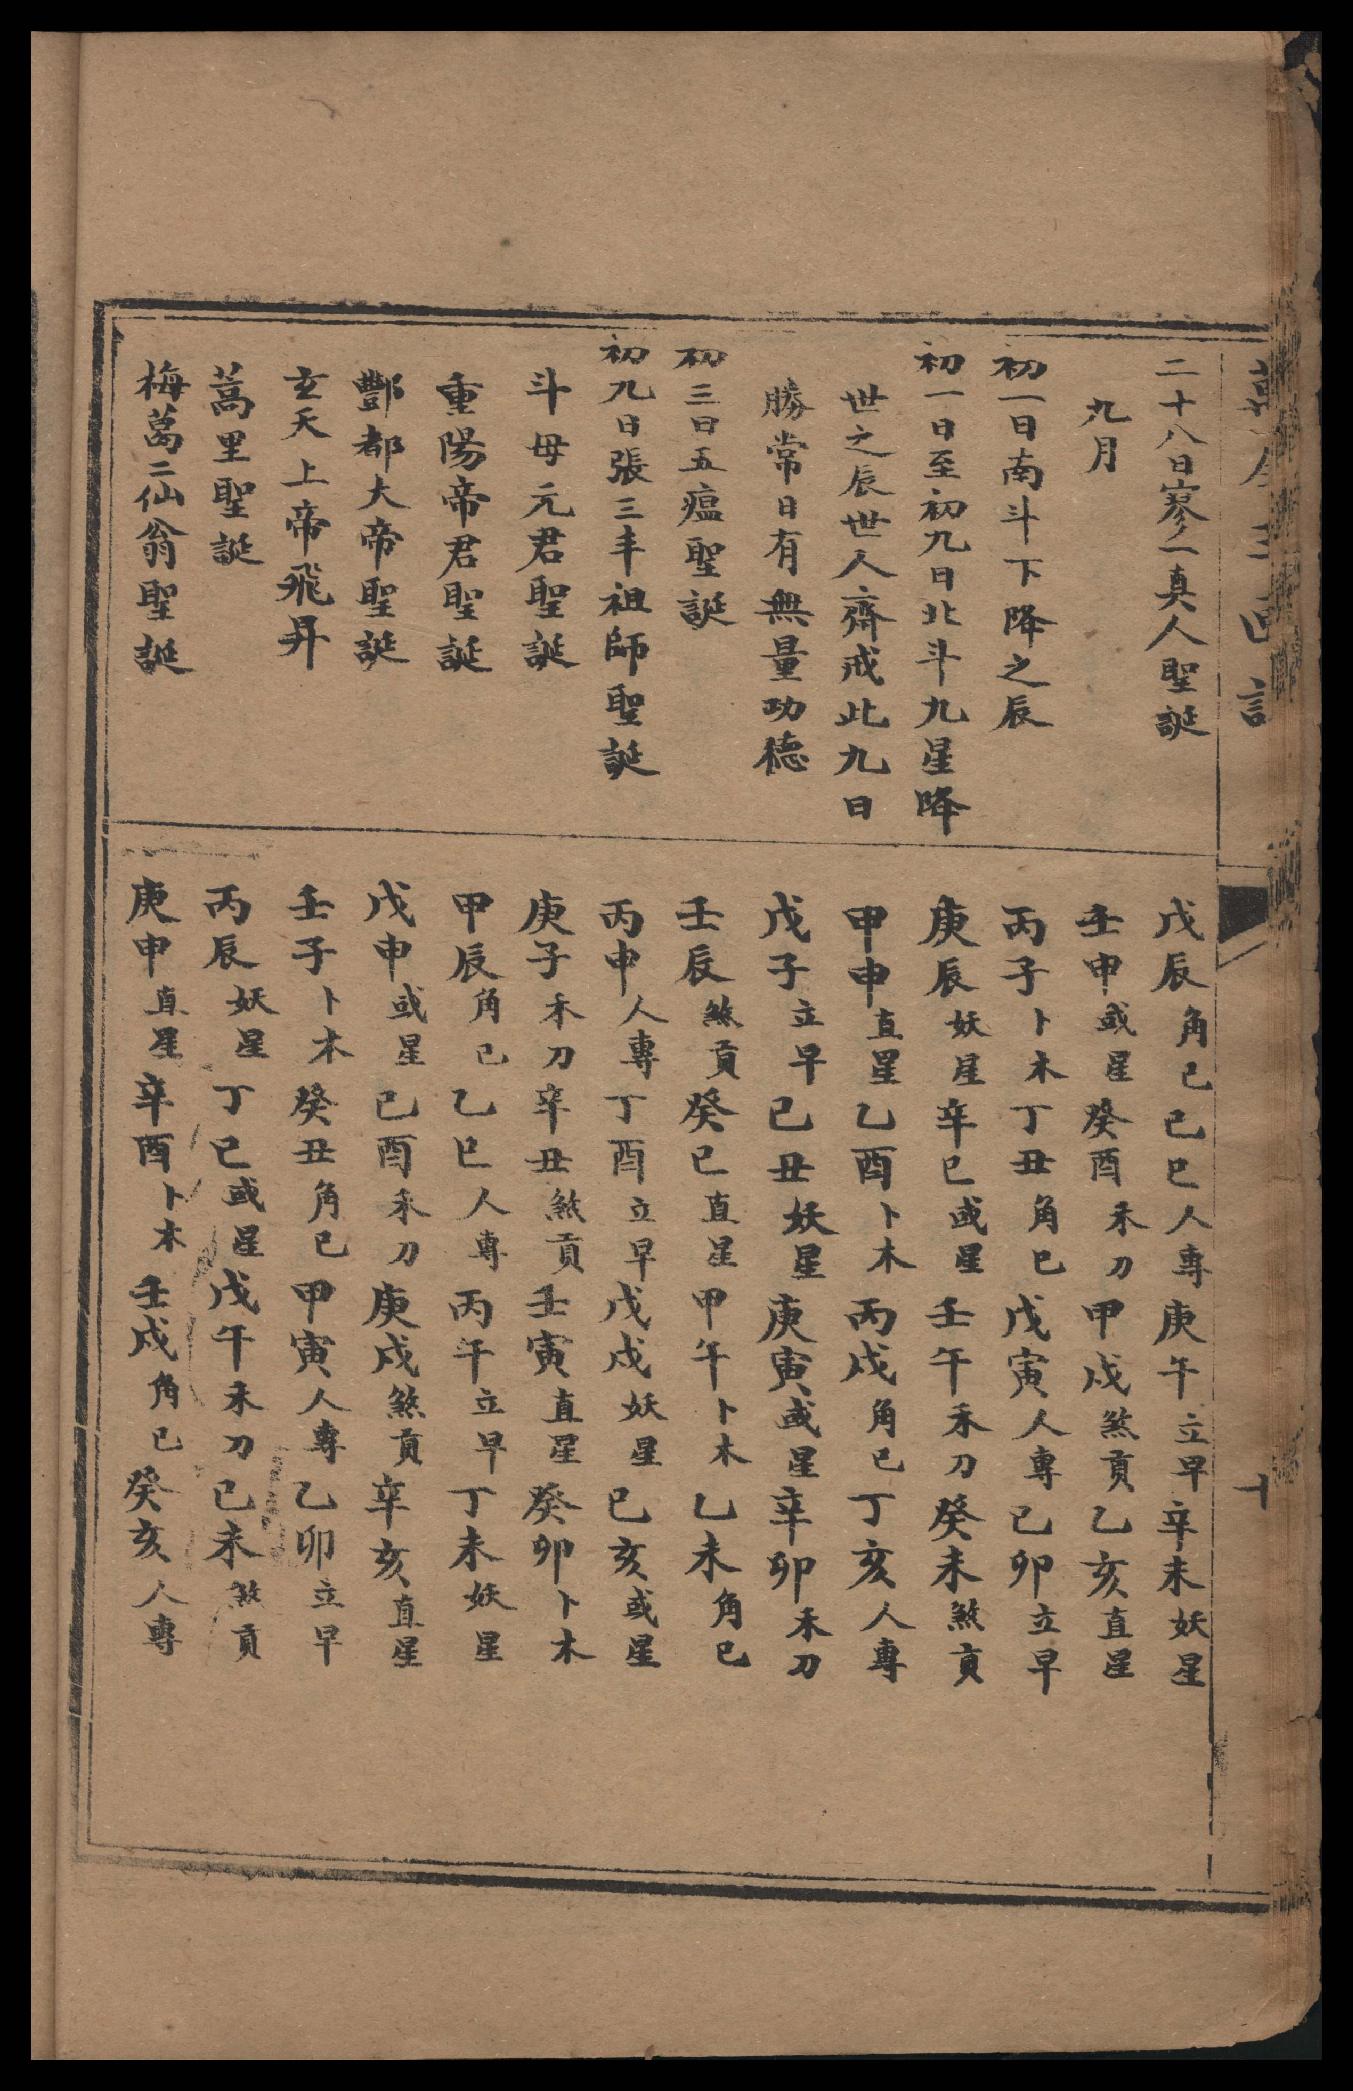 二十八日寥一真人聖誕
九月
初一日南斗下降之辰
初一日至初九日北斗九星降
世之辰世人齋戒此九日
勝常日有無量功德
初三日五瘟聖誕
初九日張三丰祖師聖誕
斗母元君聖誕
重陽帝君聖誕
酆都大帝聖誕
玄天上帝飛昇
蒿里聖誕
梅葛二仙翁聖誕
戊辰角己己巳人專庚午立早辛未妖星
壬申或星癸酉禾刀甲戌煞貢乙亥直星
丙子卜木丁丑角巳戊寅人專己卯立早
庚辰妖星辛巳或星壬午禾刀癸未煞貢
甲申直星乙酉卜木丙戌角己丁亥人專
戊子立早己丑妖星庚寅或星辛卯禾刀
壬辰煞貢癸巳直星甲午卜木乙未角己
丙申人專丁酉立早戊戌妖星己亥或星
庚子禾刀辛丑煞貢壬寅直星癸卯卜木
甲辰角己乙巳人專丙午立早丁未妖星
戊申或星己酉禾刀庚戌煞貢辛亥直星
壬子卜木癸丑角己甲寅人專乙卯立早
丙辰妖星丁巳或星戊午禾刀己未煞貢
庚申直星辛酉卜木壬戌角己癸亥人專